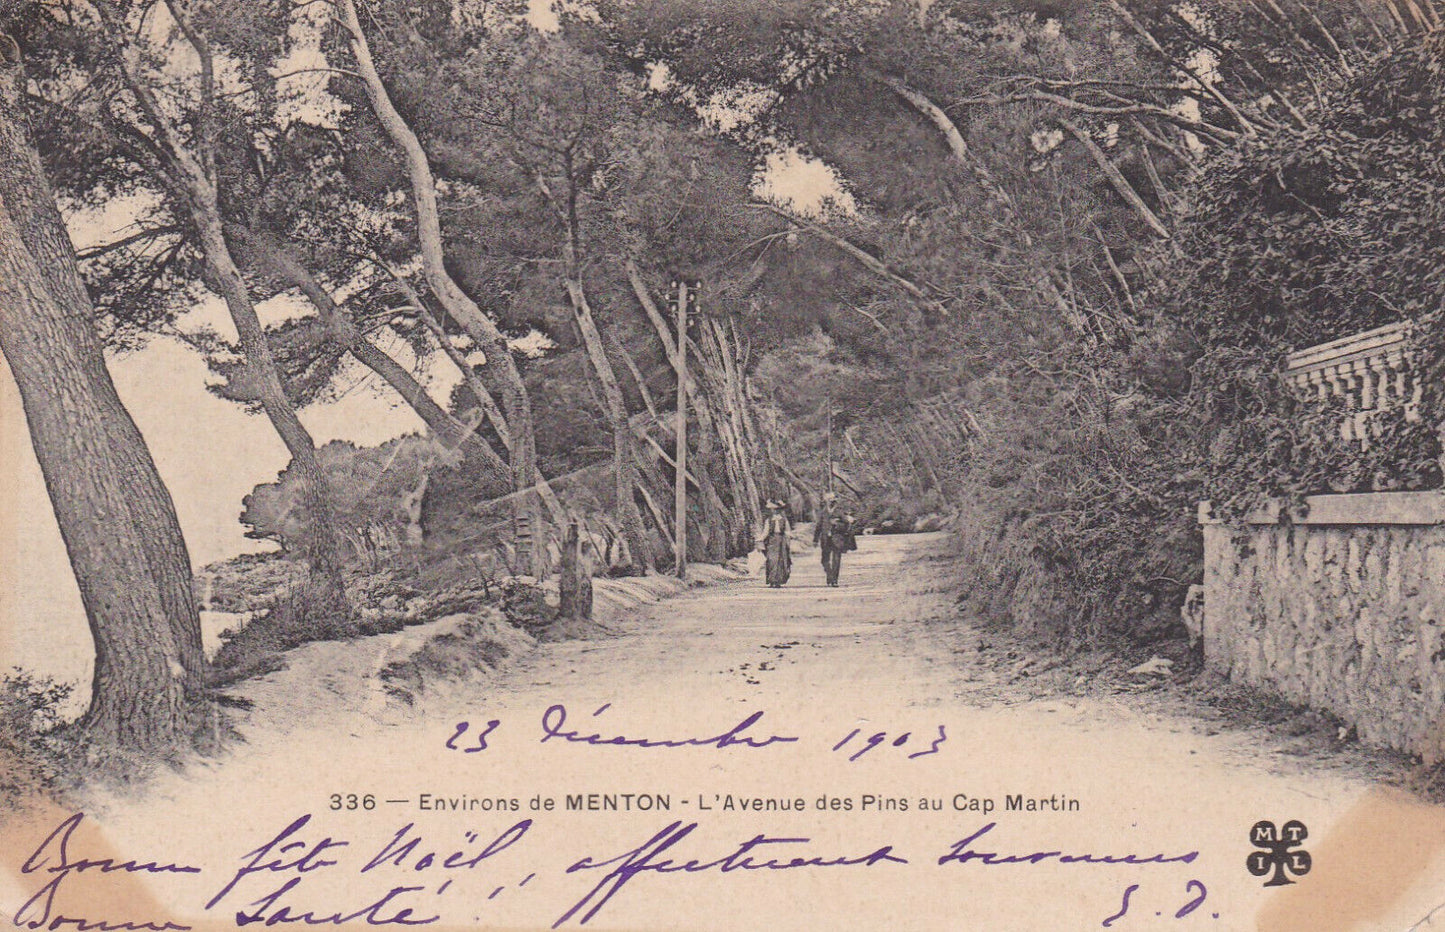 23 Décembre 1903
336 — Environs de MENTON - L'Avenue des Pins au Cap Martin
MTIL
Bonne fête Noël, affectueux souvenirs
Bonne Santé !
E. D.